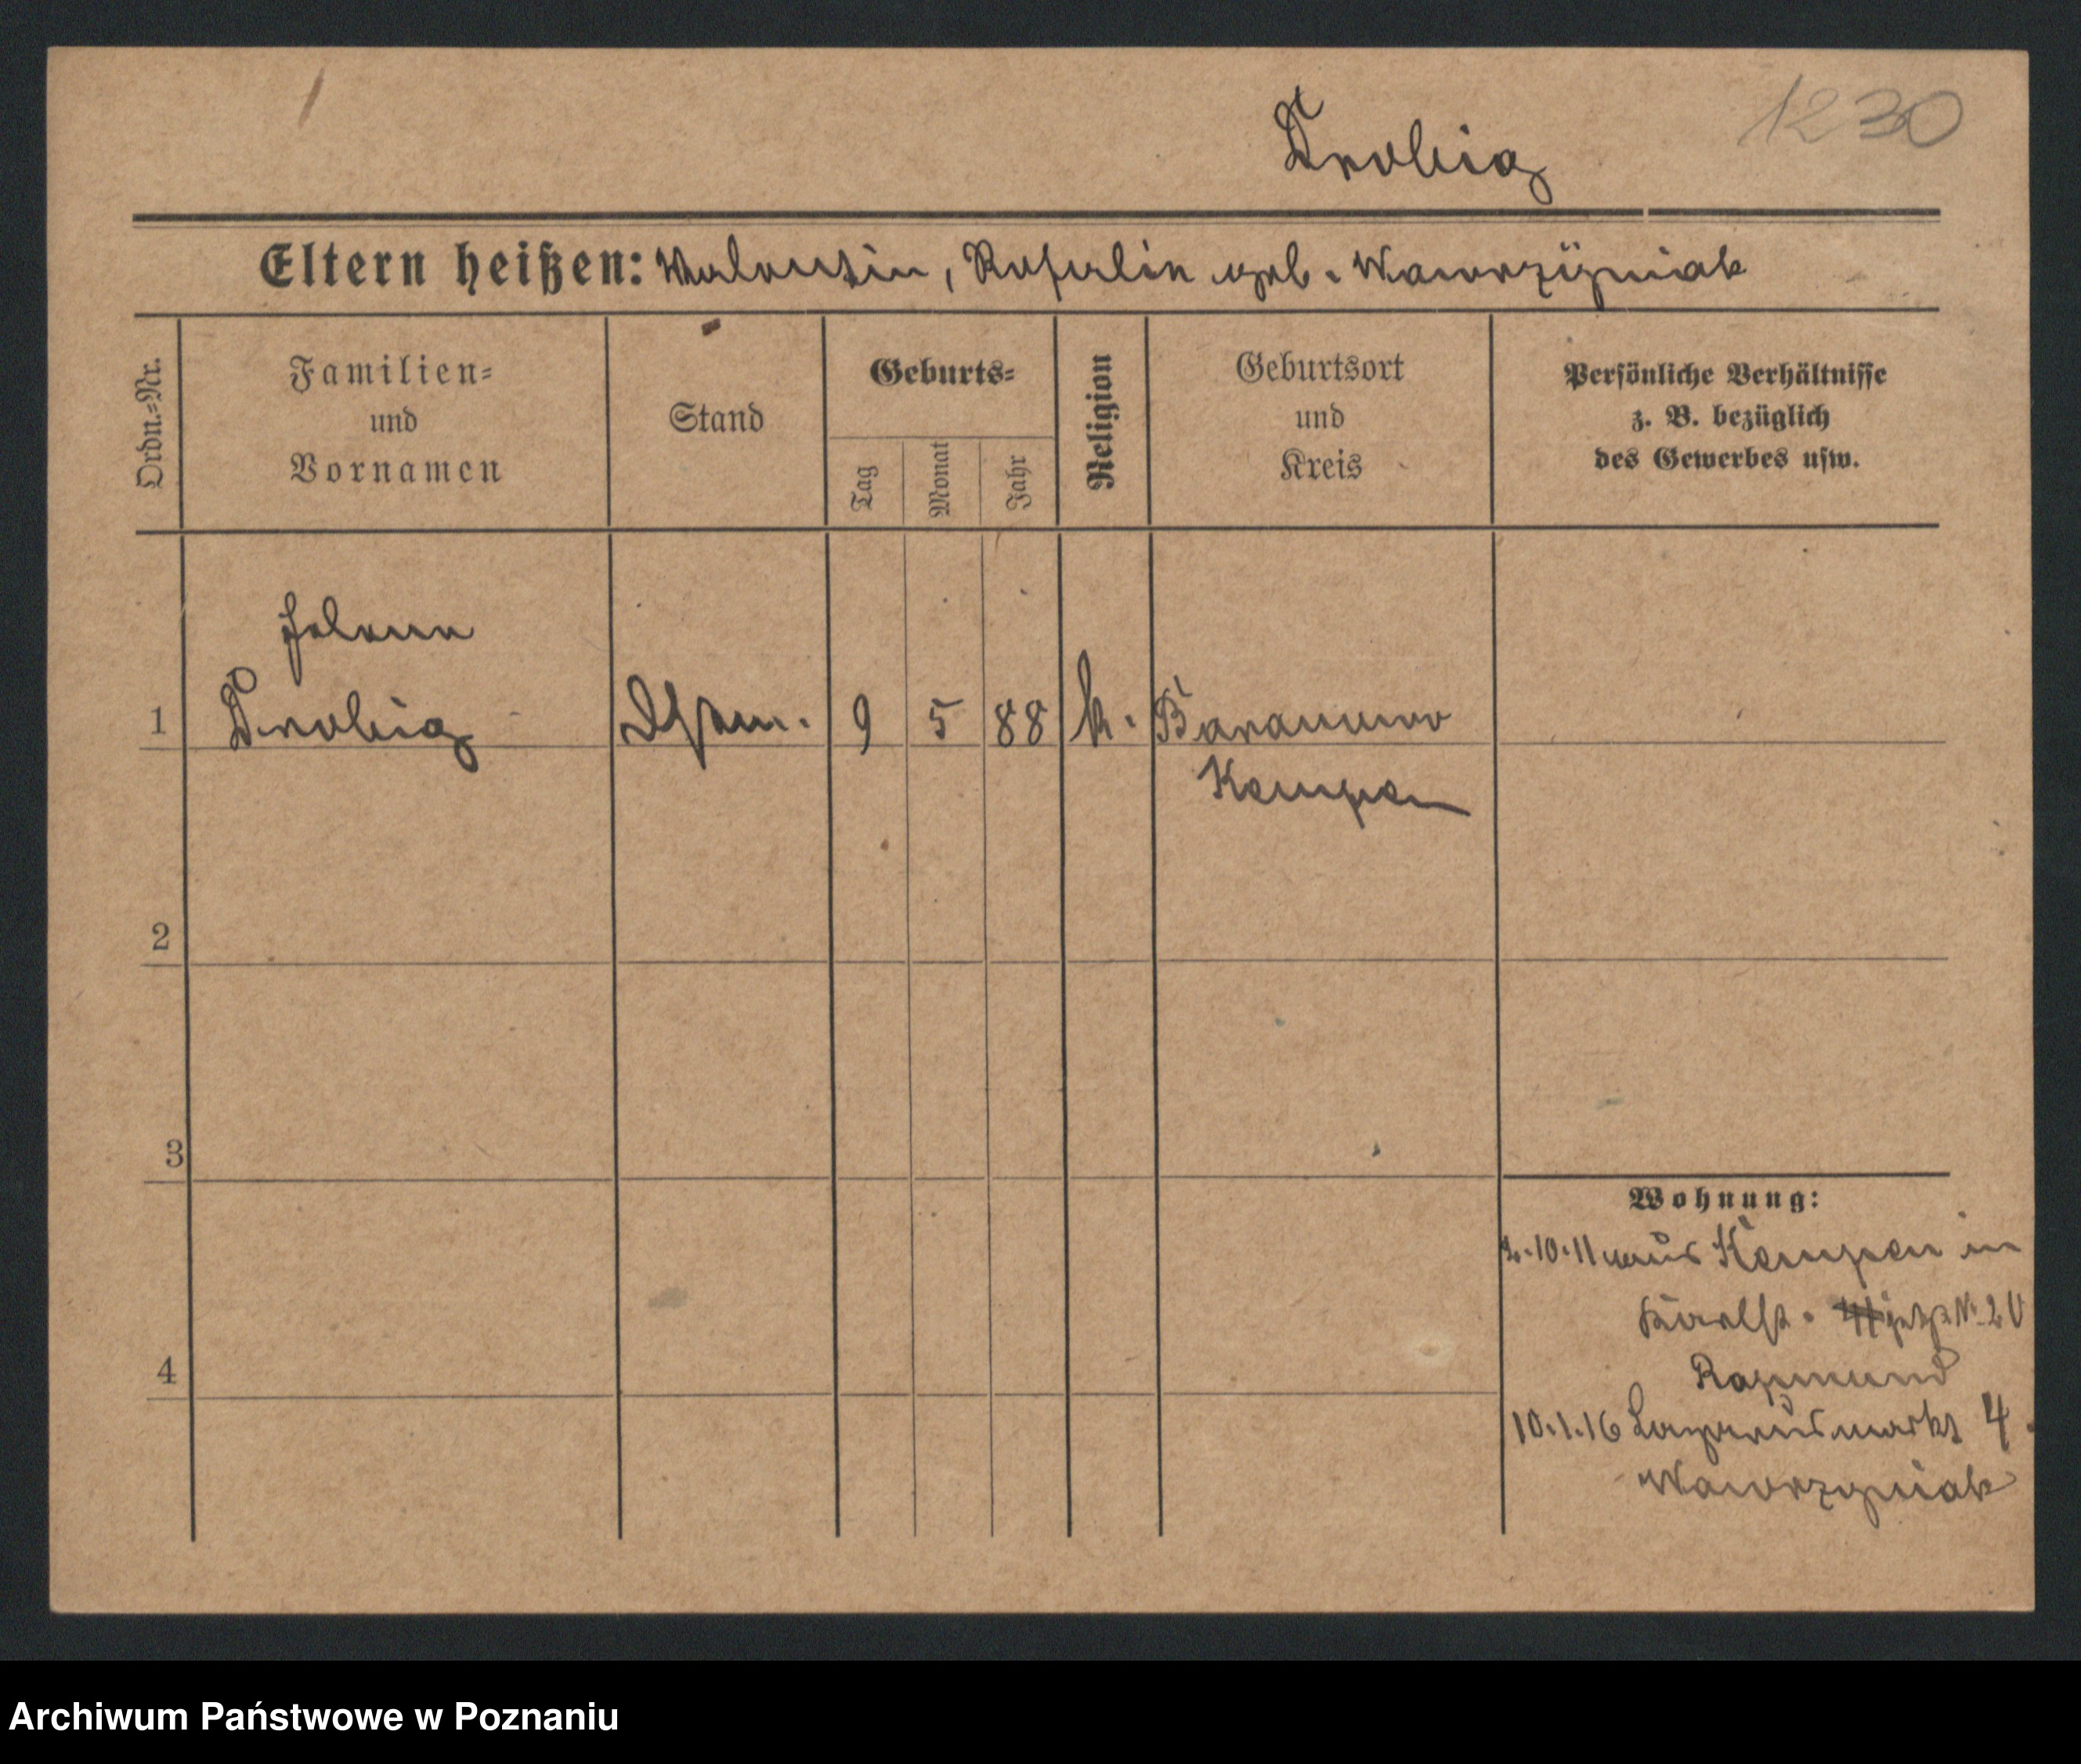 1230
Drobig
Eltern heißen: Valentin, Rosalie geb. Wawrzÿniak
Ordn.=Nr.
Familien=
und
Vornamen
Stand
Geburts=
Tag
Monat
Jahr
Religion
Geburtsort
und
Kreis
Persönliche Verhältnisse
z. B. bezüglich
des Gewerbes usw.
Johann
1 Drobig 9 5 88 k. Baranowo
Kempen
2
3
4
Wohnung:
2.10.11 aus Kempen in
jetzt N. 20
Rapmund
10.1.16 Lazarusmarkt 4.
Wawrzyniak
Archiwum Państwowe w Poznaniu